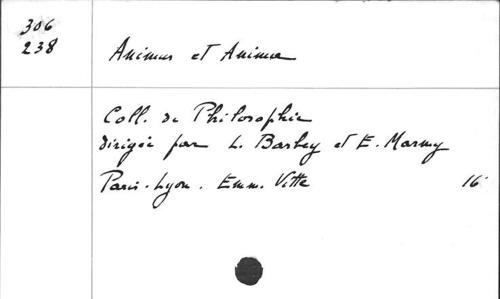 306
238
Animus et Anima
Coll. de Philosophie
dirigée par L. Barbey et E. Marmy
Paris-Lyon. Emm. Vitte 16°